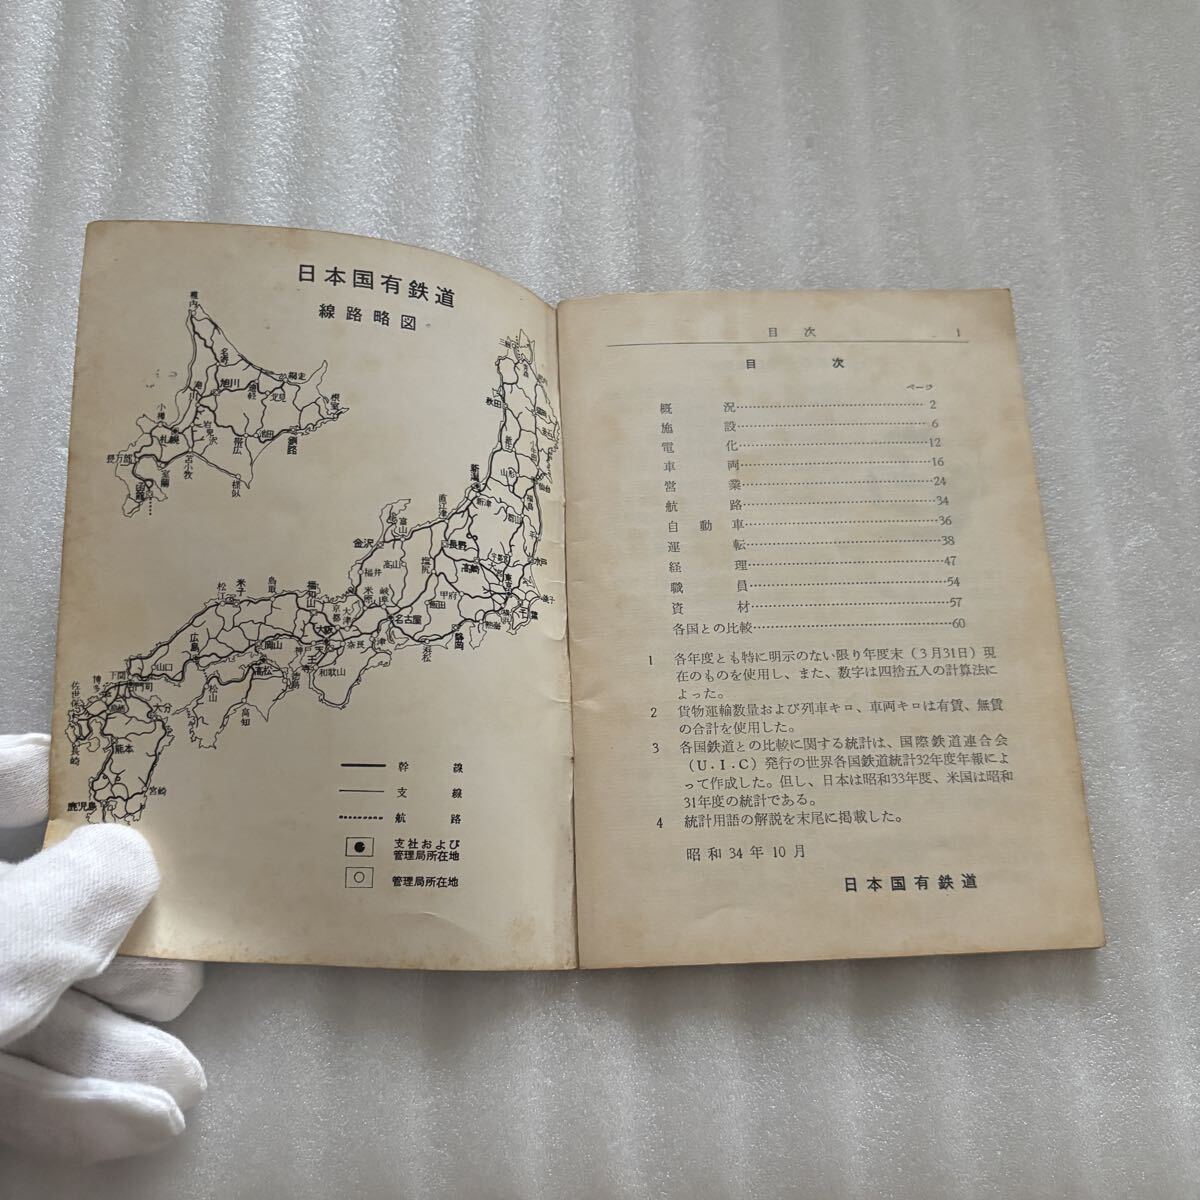 日本国有鉄道
線路略図
稚内
名寄
旭川
網走
北見
根室
小樽
札幌
岩見沢
帯広
池田
釧路
長万部
室蘭
苫小牧
様似
函館
青森
秋田
山形
仙台
新潟
新津
福島
郡山
直江津
富山
金沢
長野
高崎
水戸
福井
高山
塩尻
東京
銚子
千葉
甲府
飯田
米原
岐阜
名古屋
熱海
静岡
浜松
松江
米子
鳥取
福知山
京都
大津
大阪
奈良
広島
岡山
神戸
天王寺
和歌山
高松
徳島
松山
高知
山口
下関
門司
博多
佐世保
鳥栖
大分
長崎
熊本
宮崎
鹿児島
幹線
支線
航路
支社および
管理局所在地
管理局所在地
目次 1
目次
ページ
概況……2
施設……6
電化……12
車両……16
営業……24
航路……34
自動車……36
運転……38
経理……47
職員……54
資材……57
各国との比較……60
1 各年度とも特に明示のない限り年度末（３月31日）現
在のものを使用し、また、数字は四捨五入の計算法に
よった。
2 貨物運輸数量および列車キロ、車両キロは有賃、無賃
の合計を使用した。
3 各国鉄道との比較に関する統計は、国際鉄道連合会
（U.I.C）発行の世界各国鉄道統計32年度年報によ
って作成した。但し、日本は昭和33年度、米国は昭和
31年度の統計である。
4 統計用語の解説を末尾に掲載した。
昭和34年10月
日本国有鉄道